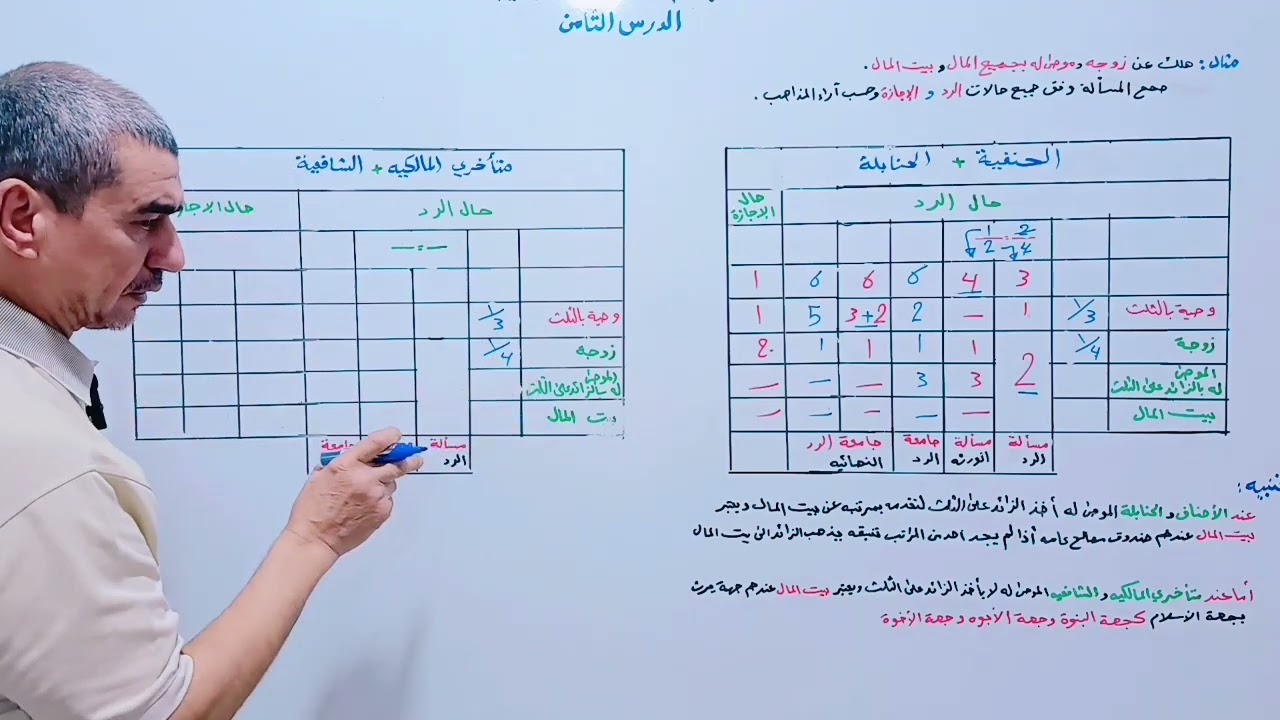 الدرس الثامن
مثال: هلك عن زوجه وموصى له بجميع المال و بيت المال.
صحح المسألة وفق جميع حالات الرد و الإجازة وحسب آراء المذاهب.
الحنفية + الحنابلة
حال الرد
حال الاجازة
1/2 = 2/4
3 4 6 6 6 1
وصية بالثلث 1/3 1 — 2 3+2 5 1
زوجه 1/4 2 1 1 1 1 2
الموصى له بالزائد على الثلث 3 3 — — —
بيت المال — — — — —
مسألة الرد
مسألة الورثه
جامعة الرد
جامعة الرد النهائيه
متأخري المالكيه + الشافعية
حال الرد
حال الاجا
— = —
وصية بالثلث 1/3
زوجه 1/4
الموصى له بالزائد على الثلث
بيت المال
مسألة الرد
جامعة
تنبيه:
عند الأحناف و الحنابلة الموصى له أخذ الزائد على الثلث لتقدمه بمرتبه عن بيت المال ويعتبر
بيت المال عندهم صندوق مصالح عامه أذا لم يجد احد من المراتب تسبقه يذهب الزائد الى بيت المال
أما عند متأخري المالكيه و الشافعيه الموصى له لا يأخذ الزائد على الثلث ويعتبر بيت المال عندهم جهة يرث
بجهة الأسلام كجهة البنوة وجهة الأبوه وجهة الأخوة